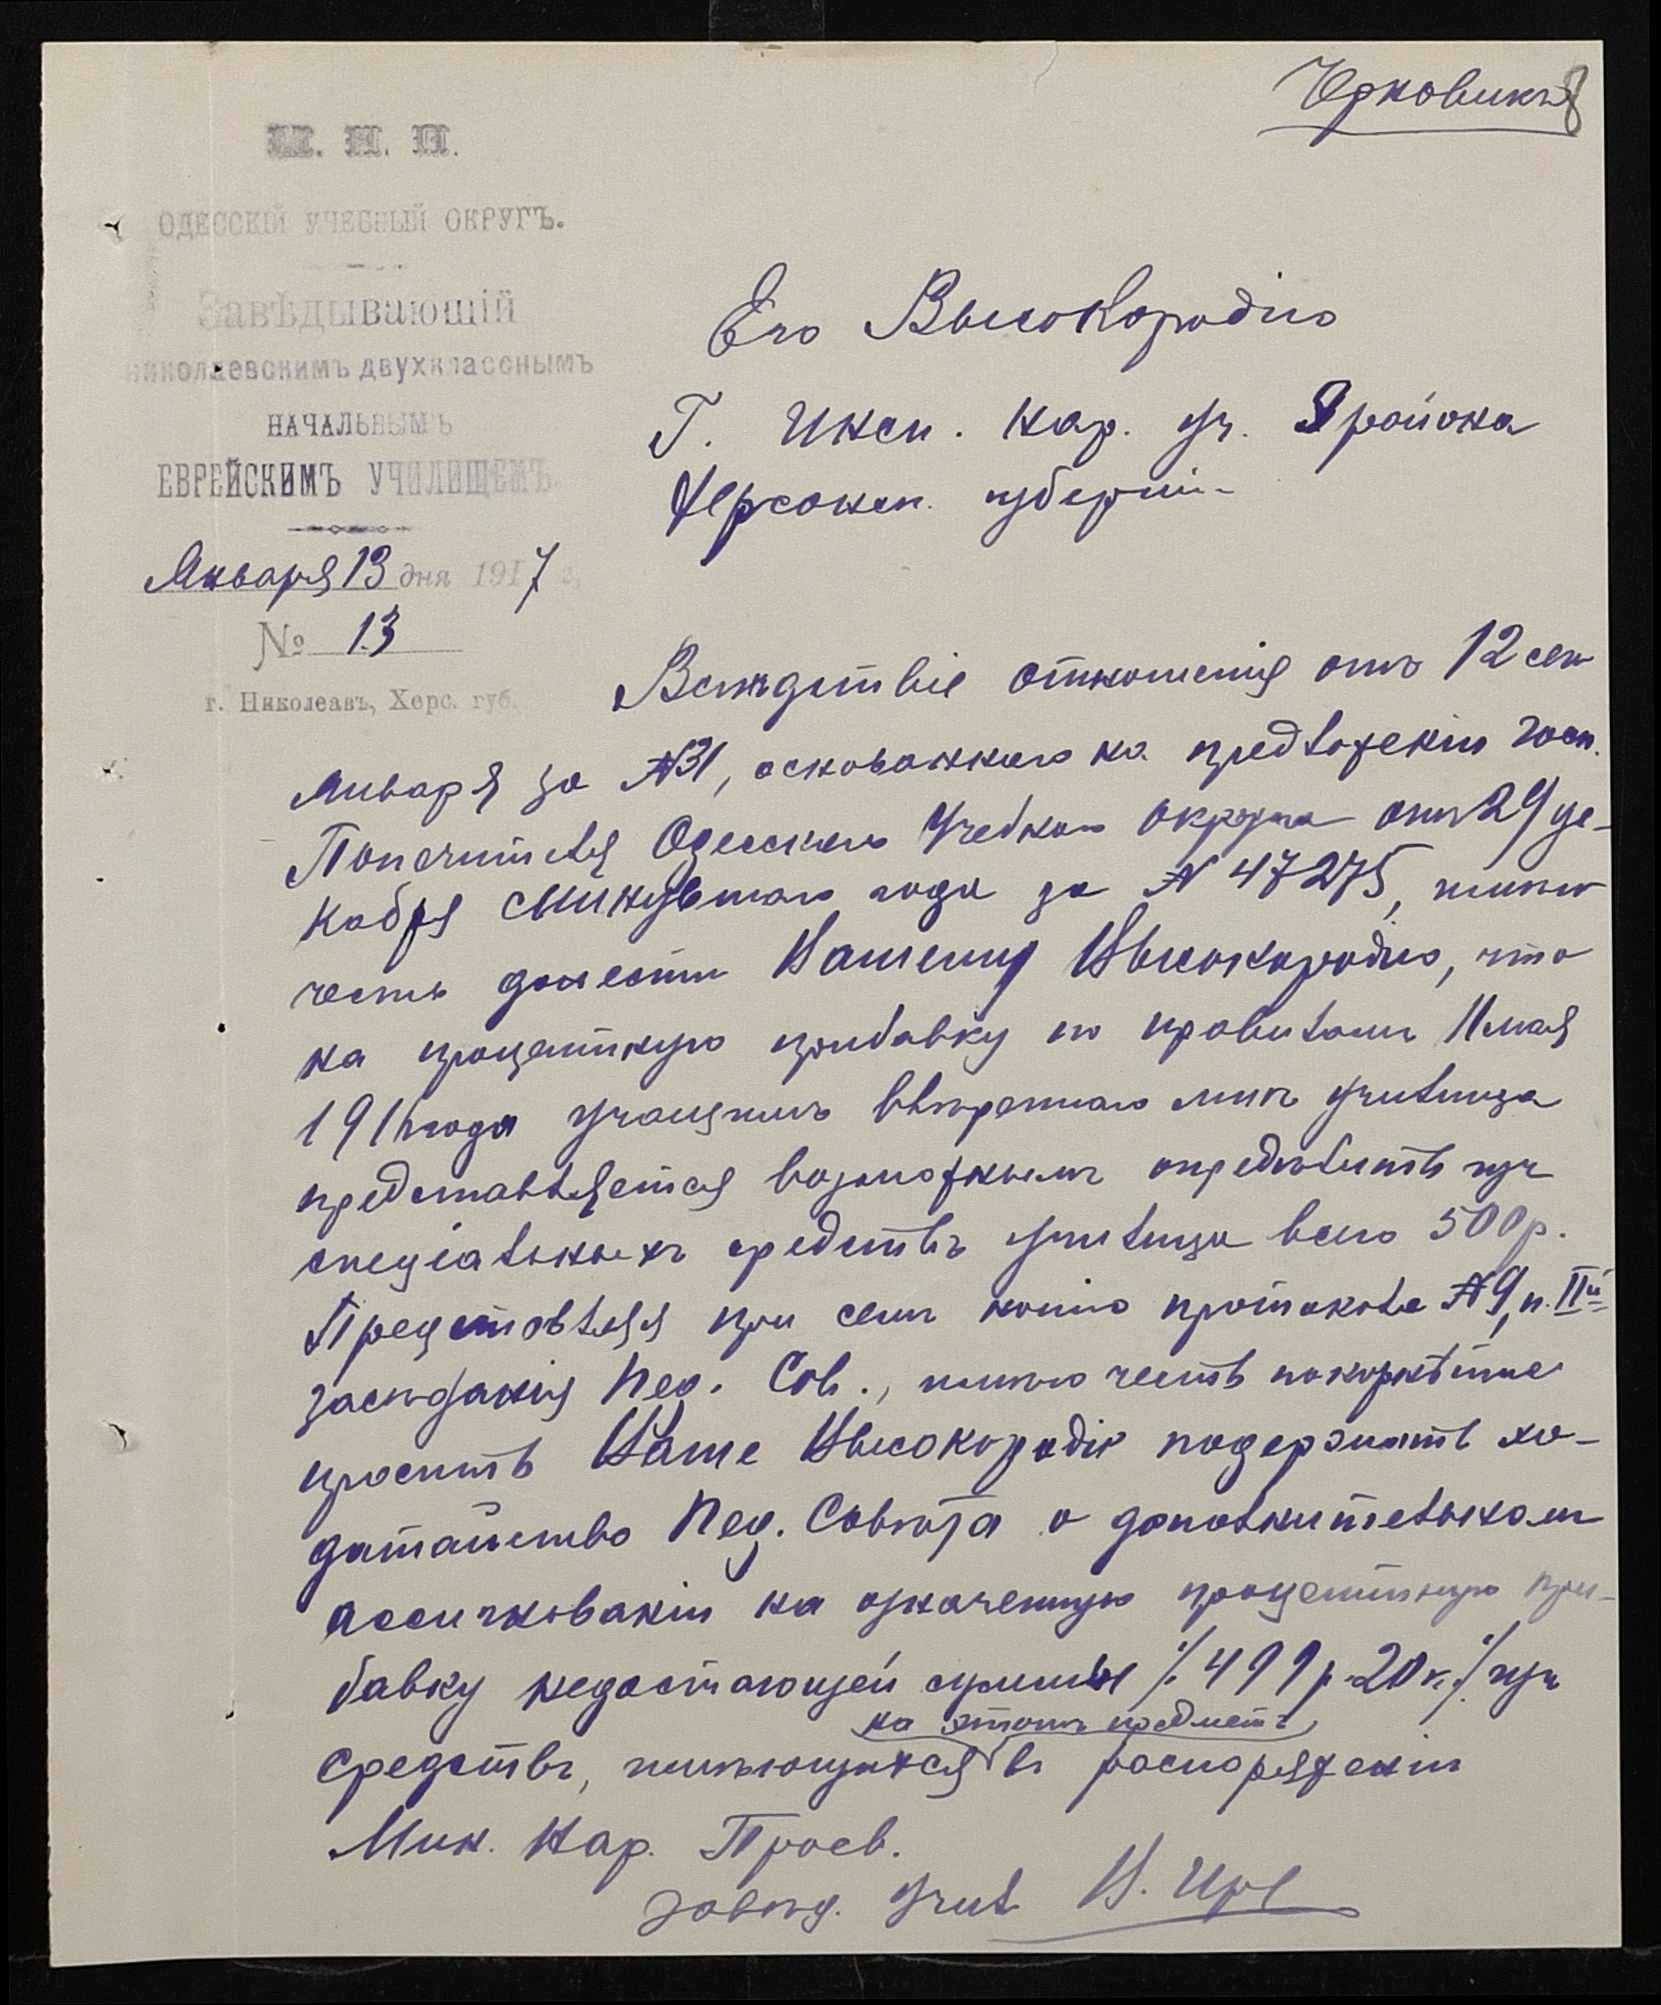 Черновикъ
8
М. Н. П.
ОДЕССКІЙ УЧЕБНЫЙ ОКРУГЪ.
Завѣдывающій
николаевскимъ двухкласснымъ
НАЧАЛЬНЫМЪ
ЕВРЕЙСКИМЪ УЧИЛИЩЕМЪ
Января 13 дня 1917 г.
№ 13
г. Николеавъ, Херс. губ.
Его Высокородію
Г. Инсп. Нар. Уч. района
Херсонск. губерніи
Вслѣдствіе отношенія отъ 12 сего
января за №31, основаннаго на предложеніи Госп.
Попечителя Одесскаго Учебнаго Округа отъ 29 де-
кабря минувшаго года за № 47275, имѣю
честь донести Вашему Высокородію, что
на процентную прибавку по правиламъ 11 мая
191 года учащимъ ввѣреннаго мнѣ училища
представляется возможнымъ опредѣлить изъ
спеціальныхъ средствъ училища всего 500р.
Представляя при семъ копію протокола №9, п. IIй
засѣданія Пед. Сов., имѣю честь покорнѣйше
просить Ваше Высокородіе подержать хо-
датайство Пед. Совѣта о дополнительномъ
ассигнованіи на означенную процентную при-
бавку недостающей суммы /499 р. 20 к./ изъ
на этотъ предметъ
средствъ, имѣющихся въ распоряженіи
Мин. Нар. Просв.
Завѣд. Учил.